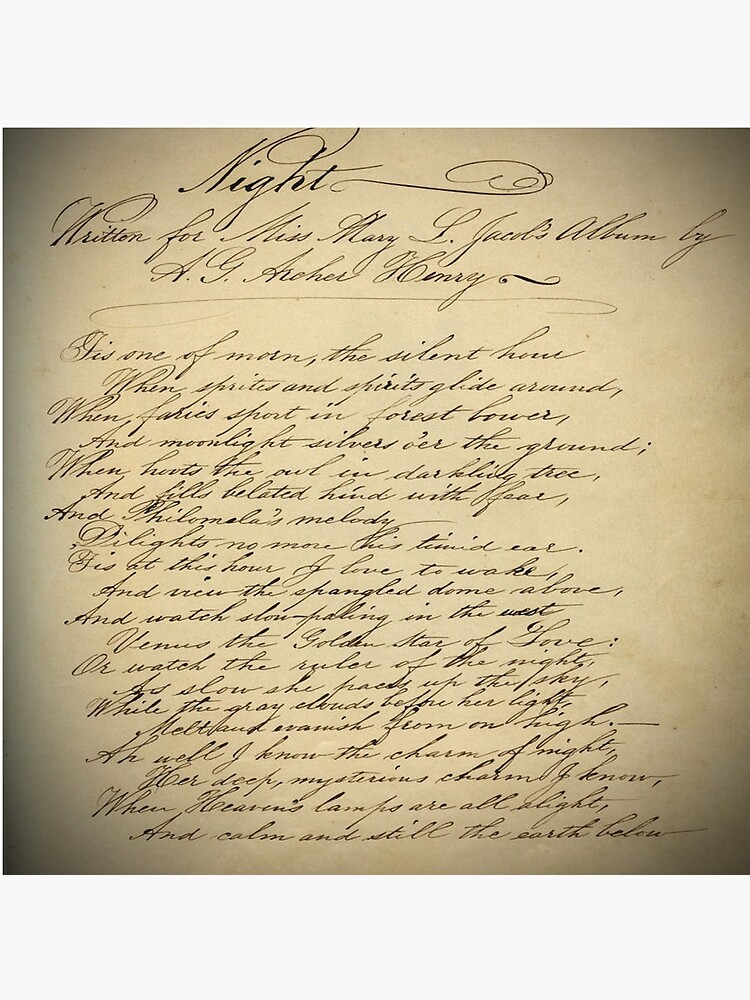 Night
Written for Miss Mary L. Jacob's Album by
A. G. Archer Henry
Tis one of morn, the silent hour
When sprites and spirits glide around,
When faries sport in forest bower,
And moonlight silvers o'er the ground;
When hoots the owl in darkling tree,
And fills belated hind with fear,
And Philomela's melody
Dilights no more his timid ear.
Tis at this hour I love to wake,
And view the spangled dome above,
And watch slow paling in the west
Venus the Golden Star of Love:
Or watch the ruler of the night,
As slow she paces up the sky,
While the gray clouds before her light,
Melt and evanish from on high.—
Ah well I know the charm of night,
Her deep, mysterious charm I know,
When Heaven's lamps are all alight,
And calm and still the earth below